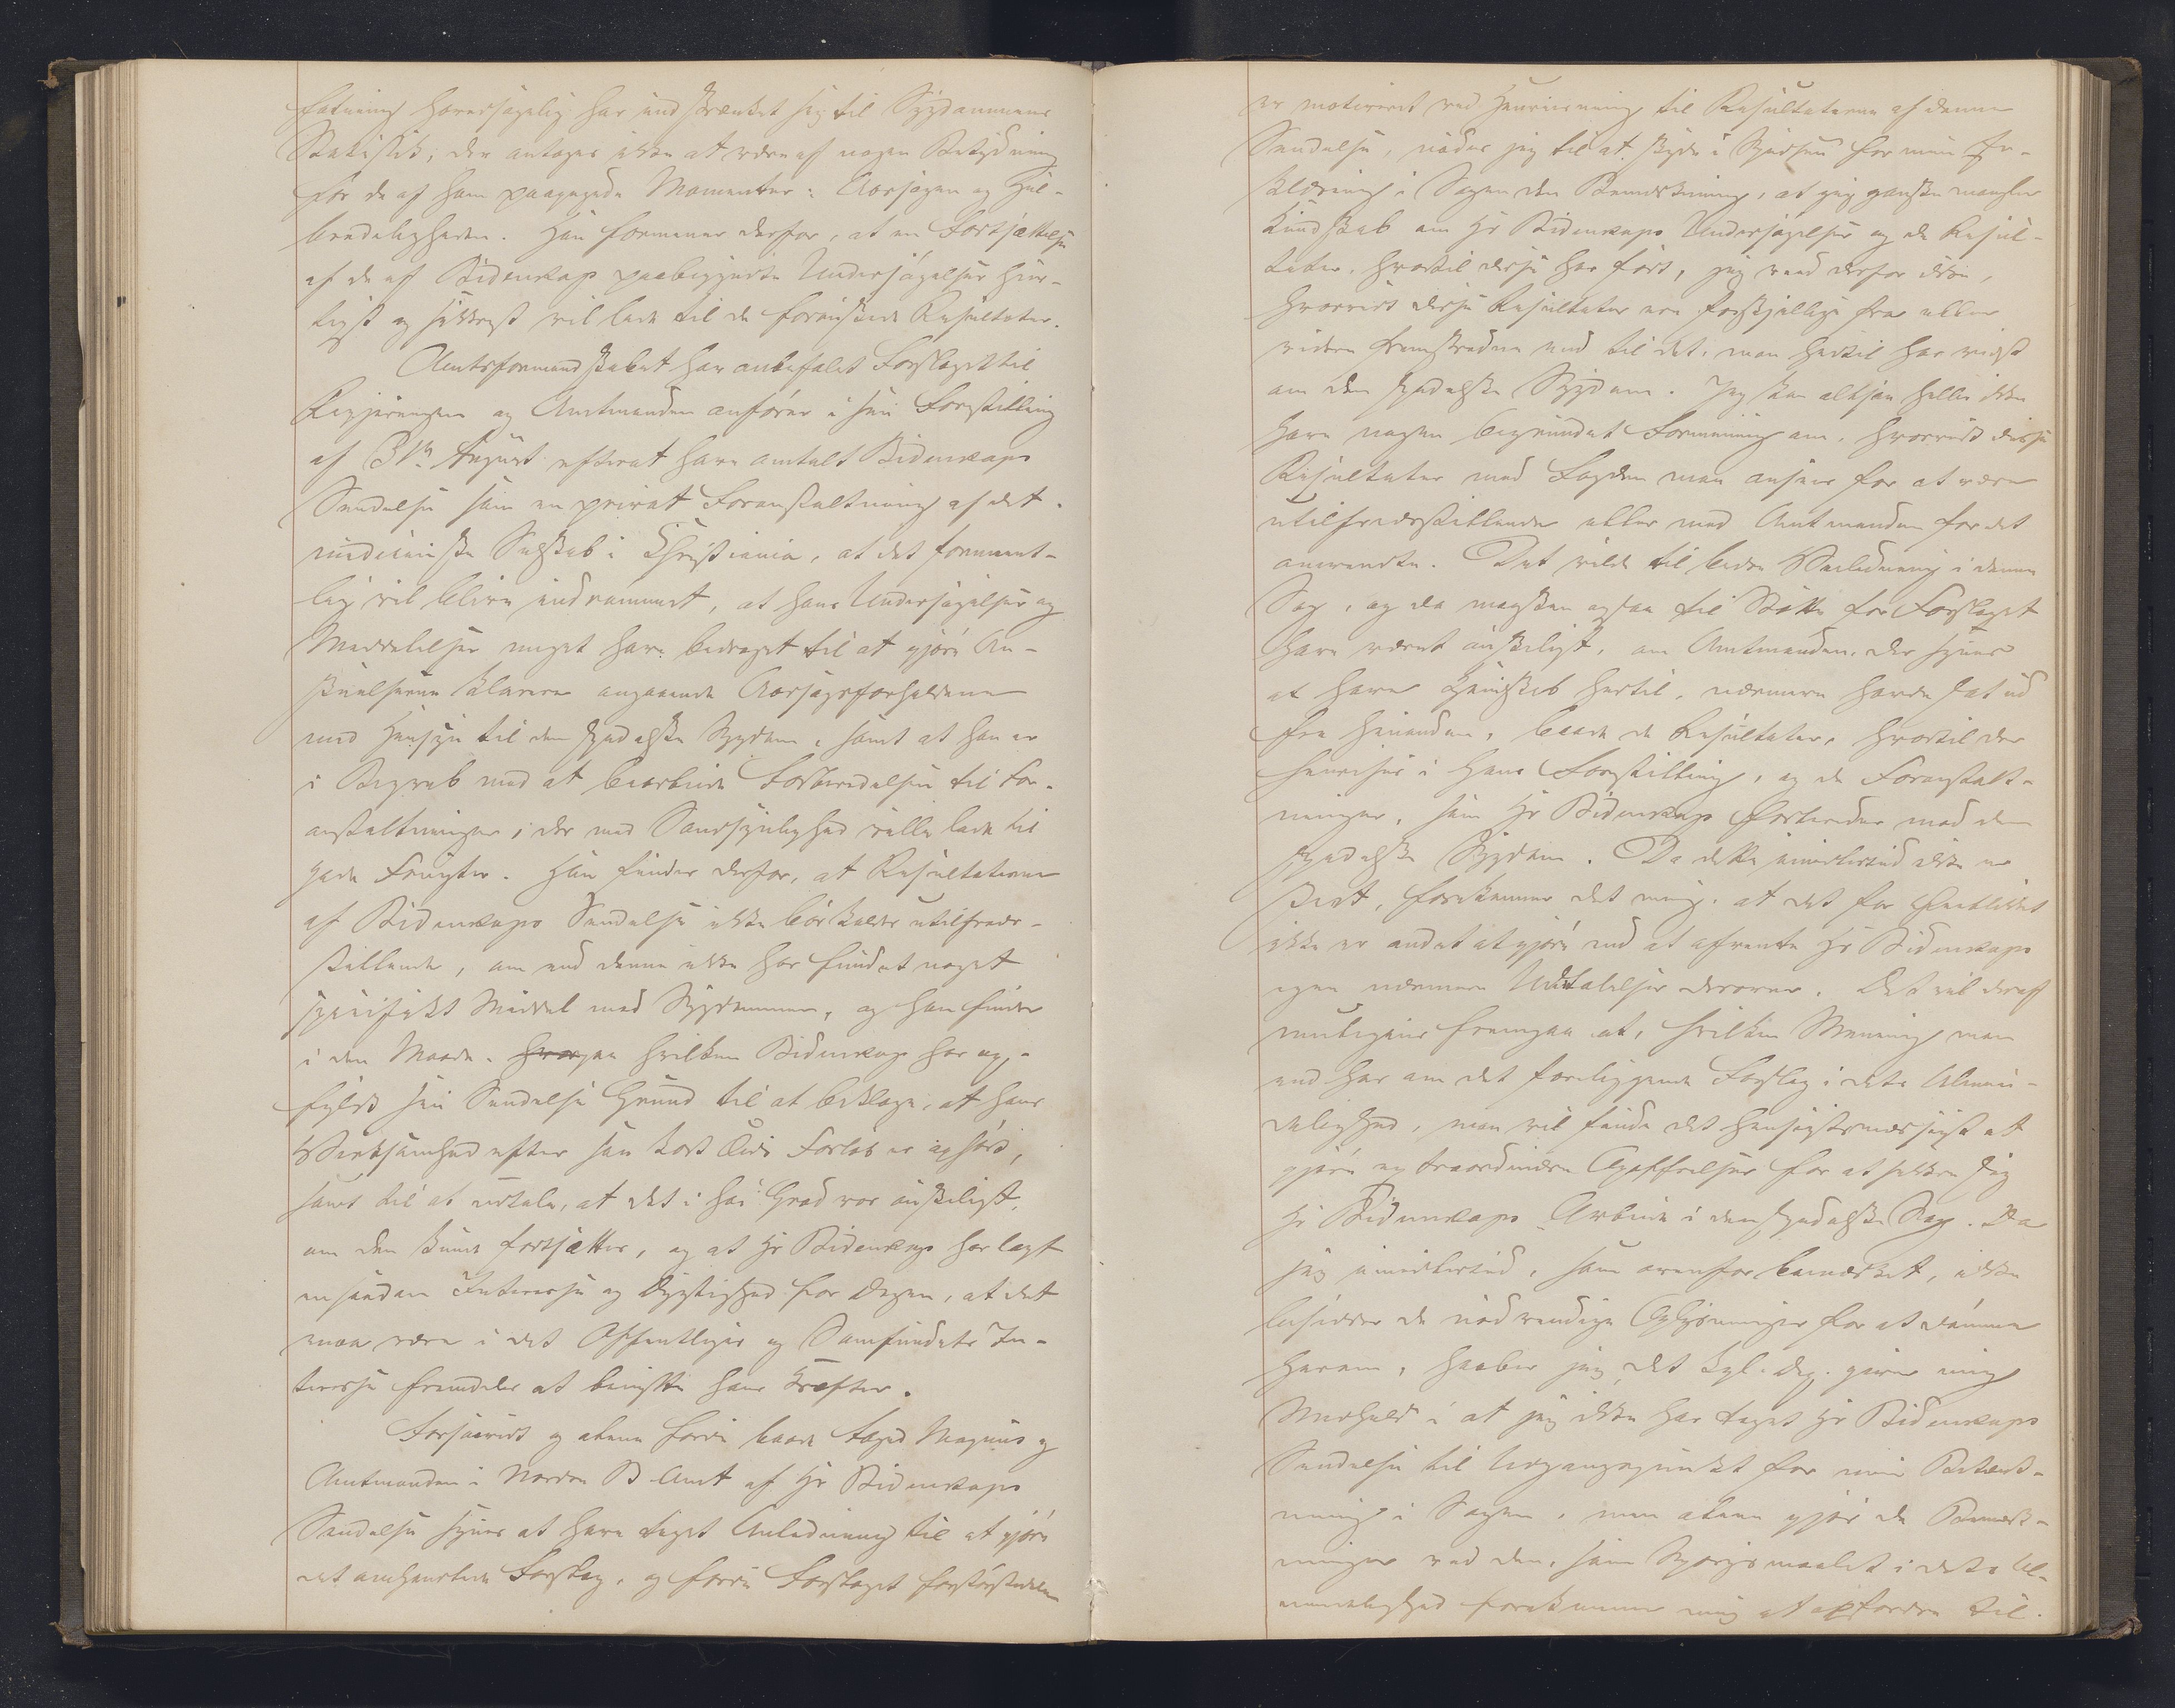 fatning hovedsagelig har indskrænket sig til Sygdommens
Statistik; der antages ikke at være af nogen Betydning
for de af ham paapegede Momenter: Aarsagen og Hel-
bredeligheden. Han formener derfor, at en Fortsættelse
af de af Bidenkap paabegyndte Undersøgelser hur-
tigst og sikkrest vil lede til de forønskede Resultater.
Amtsformandskabet har anbefalet Forslaget til
Regjeringen og Amtmanden anfører i sin Forestilling
af 31te August efterat have omtalt Bidenkaps
Sendelse som en privat Foranstaltning af det
medicinske Selskab i Christiania, at det formeent-
lig vil blive indrømmet, at hans Undersøgelser og
Meddelelser meget have bidraget til at gjøre An-
skuelserne klarere angaaende Aarsagsforholdene
med Hensyn til den spedalske Sygdom, samt at han er
i Begreb med at bearbeide Forberedelsen til For-
anstaltninger, der med Sandsynlighed ville lede til
gode Frugter. Han finder derfor, at Resultaterne
af Bidenkaps Sendelse ikke bør kaldes utilfreds-
stillende, om end denne ikke har fundet noget
specifikt Middel mod Sygdommen, og han finder
i den Maade, paa hvilken Bidenkap har op-
fyldt sin Sendelse Grund til at beklage, at hans
Virksomhed efter saa kort Tids Forløb er ophørt,
samt til at udtale, at det i høi Grad var ønskeligt,
om den kunde fortsættes, og at Hr Bidenkap har lagt
en saadan Interesse og Dygtighed for Dagen, at det
maa være i det Offentliges og Samfundets In-
teresse fremdeles at benytte hans Kræfter.
Forsaavidt og alene fordi baade Foged Magnus og
Amtmanden i Nordre B. Amt af Hr Bidenkaps
Sendelse synes at have taget Anledning til at gjøre
det omhandlede Forslag, og fordi Forslaget forstørstedelen
er motiveret ved Henvisning til Resultaterne af denne
Sendelse, nødes jeg til at skyde i Spidsen for min Er-
klæring i Sagen den Bemærkning, at jeg ganske mangler
Kundskab om Hr Bidenkaps Undersøgelser og de Resul-
tater, hvortil disse har ført, jeg veed derfor ikke,
hvorvidt disse Resultater ere forskjellige fra eller
videre fremskredne end til det, man hidtil har vidst
om den spedalske Sygdom. Jeg kan altsaa heller ikke
have nogen begrundet Formening om, hvorvidt disse
Resultater med Fogden maa ansees for at være
utilfredsstillende eller med Amtmanden for det
omvendte. Det vilde til bedre Veiledning i denne
Sag, og da maaskee ogsaa til Støtte for Forslaget
have været ønskeligt, om Amtmanden, der synes
at have Kjendskab hertil, nærmere havde sat ud
fra hinanden, baade de Resultater, hvortil der
henvises i hans Forestilling, og de Foranstalt-
ninger, som Hr Bidenkap forbereder mod den
spedalske Sygdom. Da dette imidlertid ikke er
skeet, forekommer det mig, at det for Øieblikket
ikke er andet at gjøre end at afvente Hr Bidenkaps
egne nærmere Udtalelser derover. Det vil deraf
muligens fremgaa at, hvilken Mening man
end har om det foreliggende Forslag i dets Almin-
delighed, man vil finde det hensigtsmæssigt at
gjøre extraordinære Opoffrelser for at sikkre sig
Hr Bidenkaps Arbeide i den spedalske Sag. Da
jeg imidlertid, som ovenfor bemærket, ikke
besidder de nødvendige Oplysninger for at dømme
herom, haaber jeg, det kgl. Dep. giver mig
Medhold i at jeg ikke har taget Hr Bidenkaps
Sendelse til Udgangspunkt for min Betænk-
ning i Sagen, men alene gjør de Bemærk-
ninger ved den, som Spørgsmaalet i dets Al-
mindelighed forekommer mig at opfordre til.